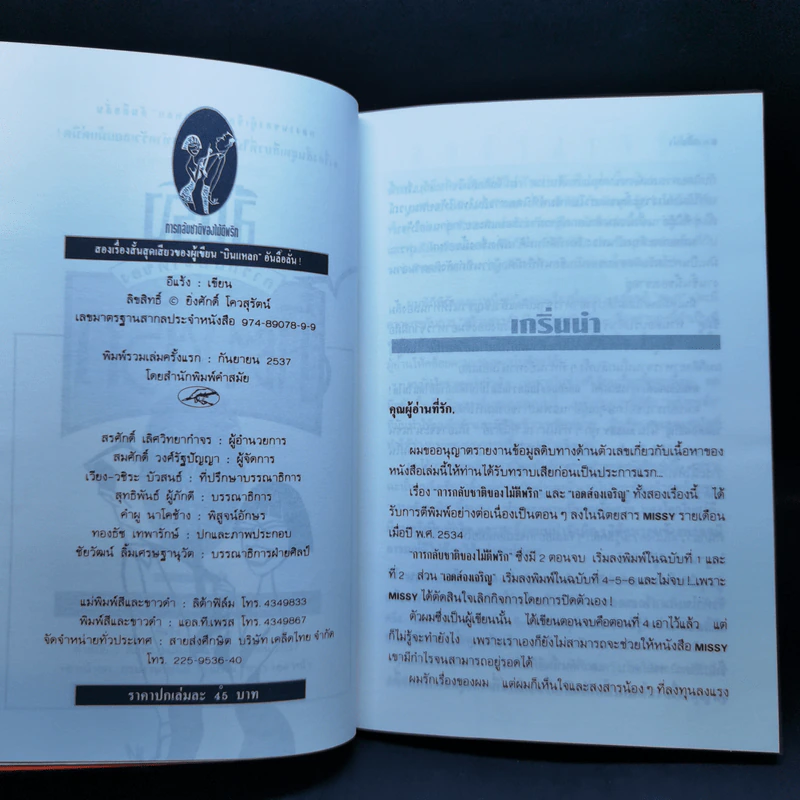 การกลับชาติของไม้ตีพริก
สองเรื่องสั้นสุดเสียวของผู้เขียน "บินแหลก" อันลือลั่น!
อีแร้ง : เขียน
ลิขสิทธิ์ © ยิ่งศักดิ์ โควสุรัตน์
เลขมาตรฐานสากลประจำหนังสือ 974-89078-9-9
พิมพ์รวมเล่มครั้งแรก : กันยายน 2537
โดยสำนักพิมพ์คำสมัย
สรศักดิ์ เลิศวิทยากำจร : ผู้อำนวยการ
สมศักดิ์ วงศ์รัฐปัญญา : ผู้จัดการ
เวียง-วชิระ บัวสนธ์ : ที่ปรึกษาบรรณาธิการ
สุทธิพันธ์ ผู้ภักดี : บรรณาธิการ
คำผู นาโคช้าง : พิสูจน์อักษร
ทองธัช เทพารักษ์ : ปกและภาพประกอบ
ชัยวัฒน์ ลิ้มเศรษฐานุวัต : บรรณาธิการฝ่ายศิลป์
แม่พิมพ์สีและขาวดำ : ลิต้าฟิล์ม โทร. 4349833
พิมพ์สีและขาวดำ : แอล.ที.เพรส โทร. 4349867
จัดจำหน่ายทั่วประเทศ : สายส่งศึกษิต บริษัท เคล็ดไทย จำกัด
โทร. 225-9536-40
ราคาปกเล่มละ ๔๕ บาท
เกริ่นนำ
คุณผู้อ่านที่รัก,
ผมขออนุญาตรายงานข้อมูลดิบทางด้านตัวเลขเกี่ยวกับเนื้อหาของ
หนังสือเล่มนี้ให้ท่านได้รับทราบเสียก่อนเป็นประการแรก...
เรื่อง "การกลับชาติของไม้ตีพริก" และ "เอดส์จงเจริญ" ทั้งสองเรื่องนี้ ได้
รับการตีพิมพ์อย่างต่อเนื่องเป็นตอน ๆ ลงในนิตยสาร MISSY รายเดือน
เมื่อปี พ.ศ. 2534
"การกลับชาติของไม้ตีพริก" ซึ่งมี 2 ตอนจบ เริ่มลงพิมพ์ในฉบับที่ 1 และ
ที่ 2 ส่วน "เอดส์จงเจริญ" เริ่มลงพิมพ์ในฉบับที่ 4-5-6 และไม่จบ!..เพราะ
MISSY ได้ตัดสินใจเลิกกิจการโดยการปิดตัวเอง!
ตัวผมซึ่งเป็นผู้เขียนนั้น ได้เขียนตอนจบคือตอนที่ 4 เอาไว้แล้ว แต่
ก็ไม่รู้จะทำยังไง เพราะเราเองก็ยังไม่สามารถจะช่วยให้หนังสือ MISSY
เขามีกำไรจนสามารถอยู่รอดได้
ผมรักเรื่องของผม แต่ผมก็เห็นใจและสงสารน้อง ๆ ที่ลงทุนลงแรง